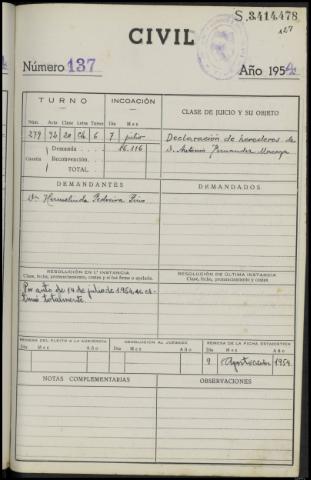 S.3414.478
127
CIVIL
Número 137 Año 1954
TURNO INCOACIÓN CLASE DE JUICIO Y SU OBJETO
Núm. Acta Clase Letra Turno Día Mes
279 72 20 Ch 6 7 julio Declaración de herederos de
Cuantía Demanda . . . 16.116 D. Antonio Fernandez
Reconvención.
TOTAL. . .
DEMANDANTES DEMANDADOS
Dª Hermelinda
RESOLUCIÓN EN 1.ª INSTANCIA RESOLUCIÓN DE ÚLTIMA INSTANCIA
Clase, fecha, pronunciamiento, costas y si fué firme o apelada. Clase, fecha, pronunciamiento y costas
Por auto de 14 de julio de 1954, se es-
timó totalmente.
REMESA DEL PLEITO A LA AUDIENCIA DEVOLUCIÓN AL JUZGADO REMESA DE LA FICHA ESTADÍSTICA
Día Mes Año Día Mes Año Día Mes Año
9 Agosto 1954
NOTAS COMPLEMENTARIAS OBSERVACIONES